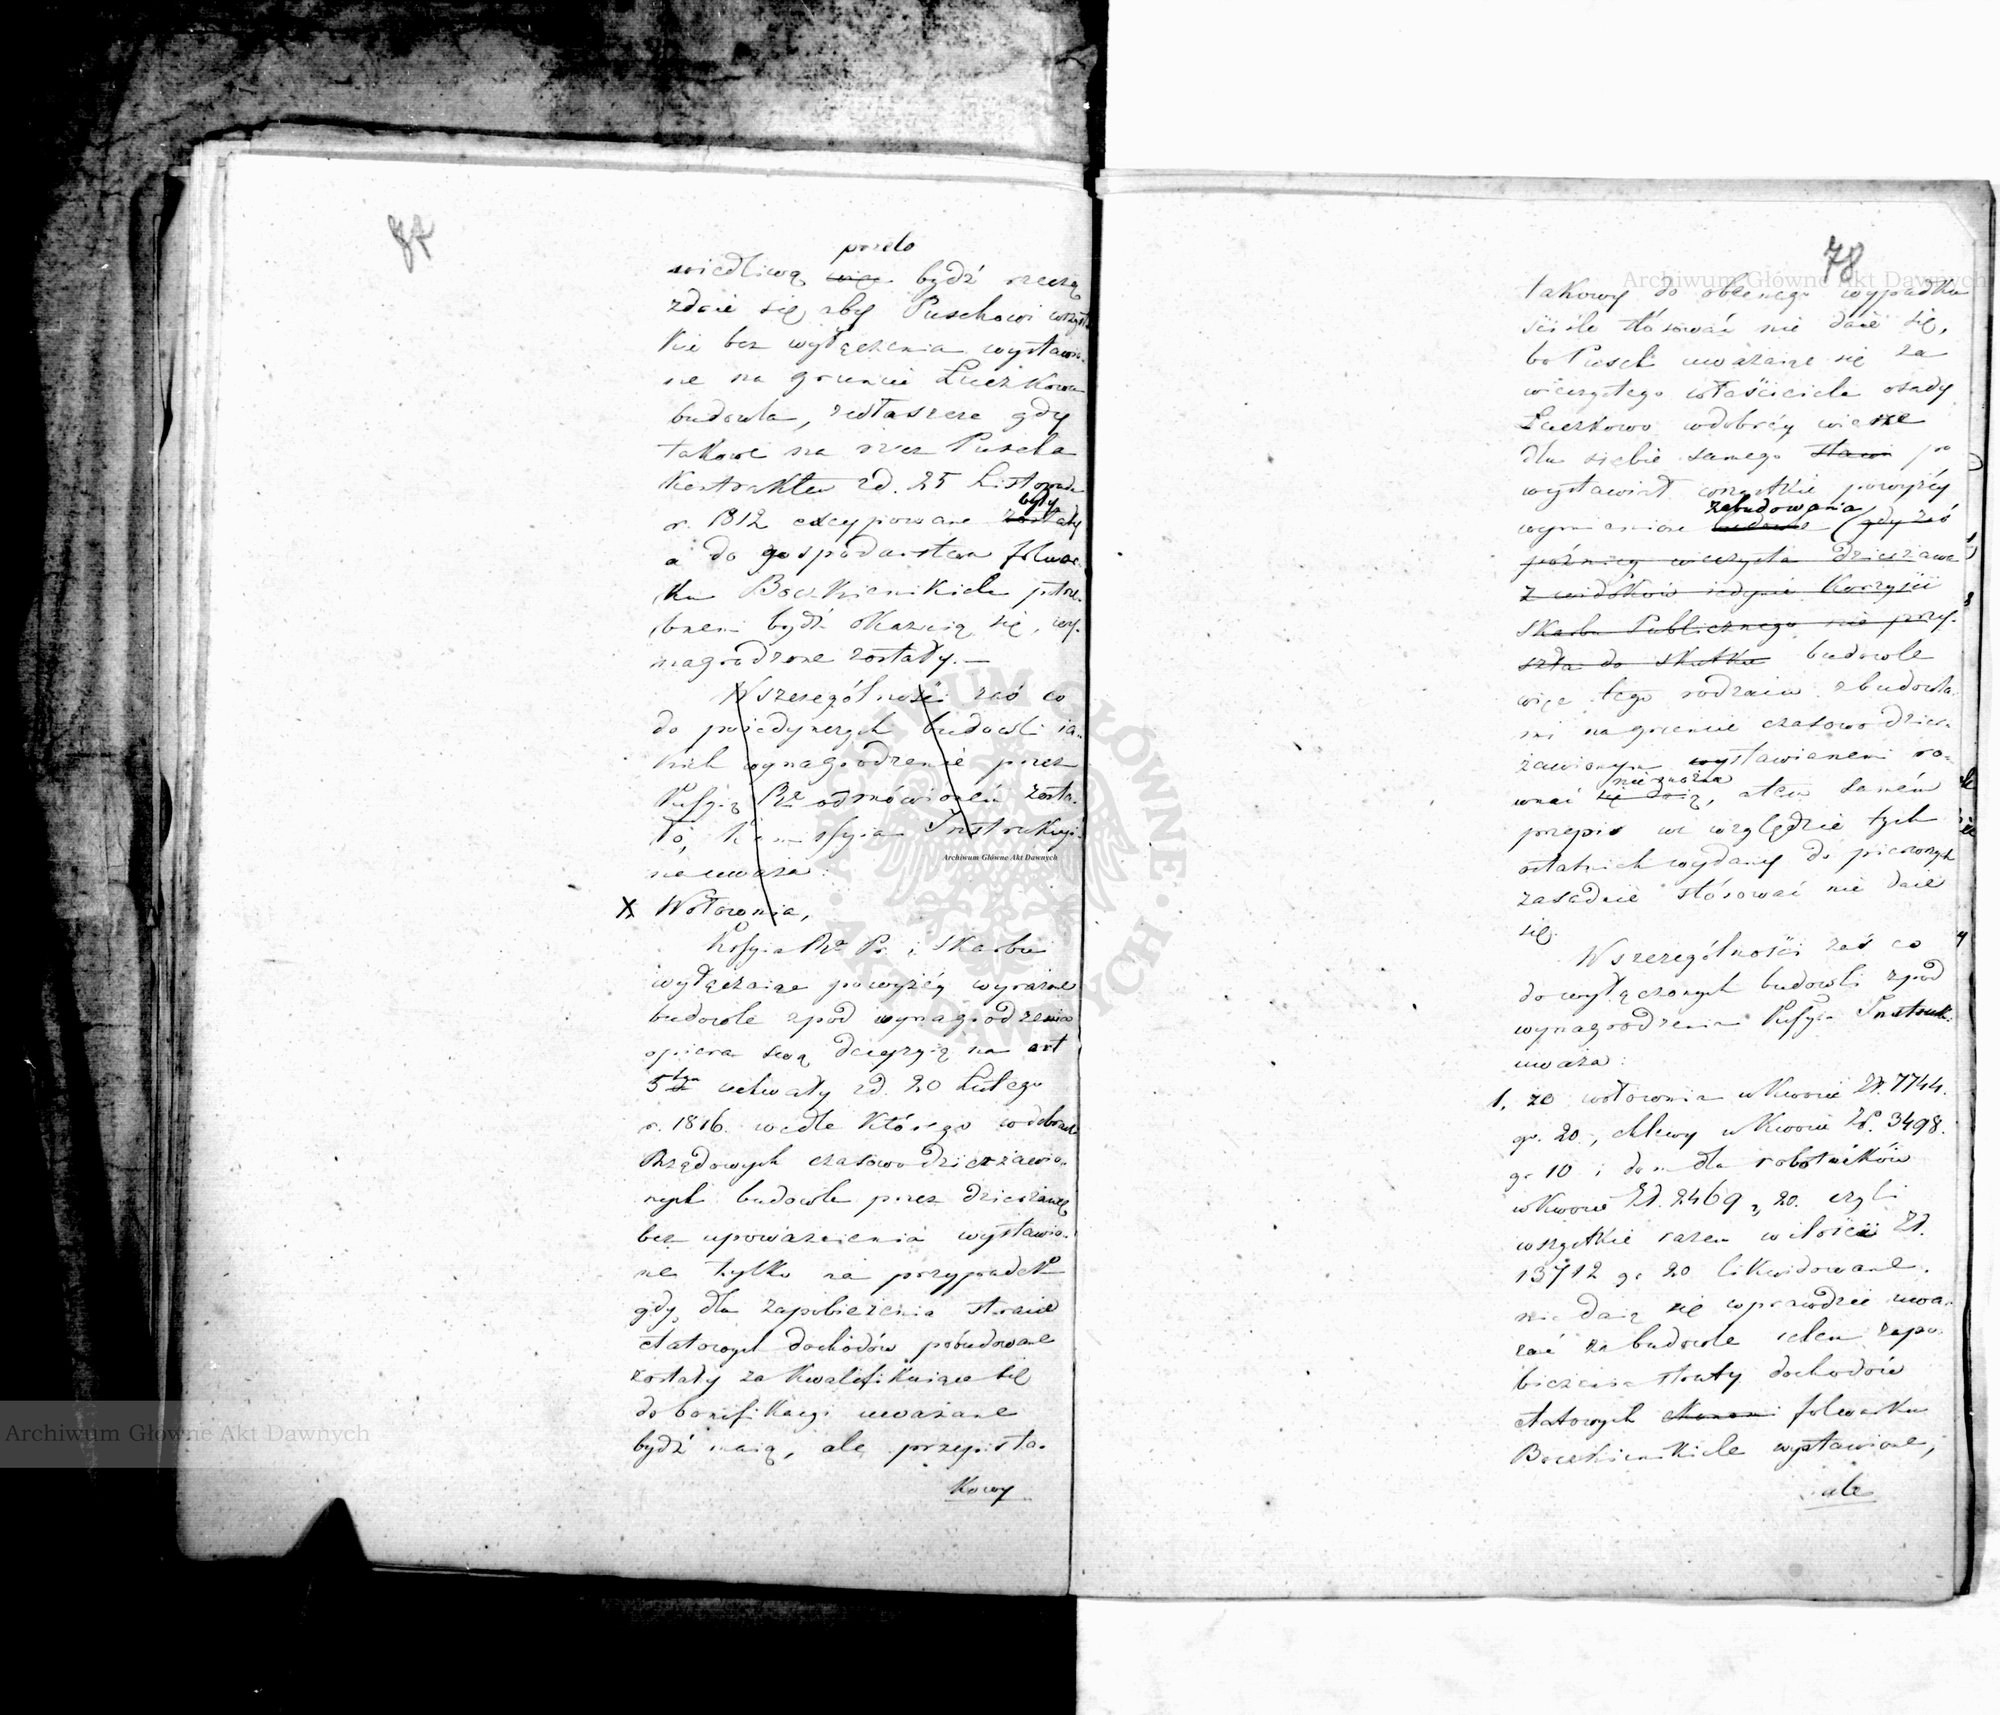 przeto
wiedliwą więc bydź rzeczą
zdaie się aby Puschowi wszyst
kie bez wyłączenia wystawio-
ne na gruncie Łuczkowa
budowla, zwłaszcza gdy
takowe na rzecz Puscha
Kontraktem z d. 25 Listopada
były
r. 1812 excypowane zostały
a do gospodarstwa folwar-
ku Boczkienikiele potrze-
bnemi bydź okazuią się, wy-
nagrodzone zostały. —
W szczególności zaś co
do poiedynczych budowli ia-
kich wynagrodzenie przez
odmówionem zosta-
ło, Instrukcyi-
na uważa:
X Wołownia,
i Skarbu
wyłączaiąc powyżéy wyrażone
budowle zpod wynagrodzenia
opiera swą decyzyią na art
5tym uchwały z d. 20 Lutego
r. 1816. wedle którego w dobrach
Rządowych czasowo dzierżawio-
nych budowle przez dzierżawcę
bez upoważnienia wystawio-
ne tylko na przypadek
gdy dla zapobieżenia stracie
etatowych dochodów pobudowane
zostały za kwalifikuiące się
do bonifikacyi uważane
bydź maią, ale przepis ta-
kowy
78
takowy do obecnego wypadku
ściśle stósować nie daie się,
bo Pusch uważaiąc się za
wieczystego właściciela osady
Łuczkowo w dobréy wierze
dla siebie samego stawi po
wystawiał wszystkie powyżéy
zabudowania
wymienione budowle (gdy zaś
późniéy wieczysta dzierżawa
z widoków iedynie korzyści
Skarbu Publicznego nie przy-
szła do skutku budowle
więc tego rodzaiu z budowla-
mi na gruncie czasowo dzier-
żawionym wystawionemi ró-
nie można
wnać się daią, a tem samém
przepis we względzie tych
ostatnich wydany do pierwszych
zasadnie stósować nie daie
się.
W szczególności zaś co
do wyłączonych budowli zpod
wynagrodzenia Instruk.
uważa:
1, że wołownia w kwocie Zł. 7744.
gr. 20., chlewy w kwocie Zł. 3498.
gr 10 i dom dla robotników
w kwocie Zł. 2469 „ 20. czyli
wszystkie razem w ilości Zł.
13712 gr 20 likwidowane,
nie daią się wprawdzie uwa-
żać za budowle celem zapo-
bieżenia straty dochodów
etatowych ekonomi folwarku
Boczkienikiele wystawione,
ale
Archiwum Główne Akt Dawnych
Archiwum Główne Akt Dawnych
Archiwum Główne Akt Dawnych
ARCHIWUM GŁÓWNE AKT DAWNYCH